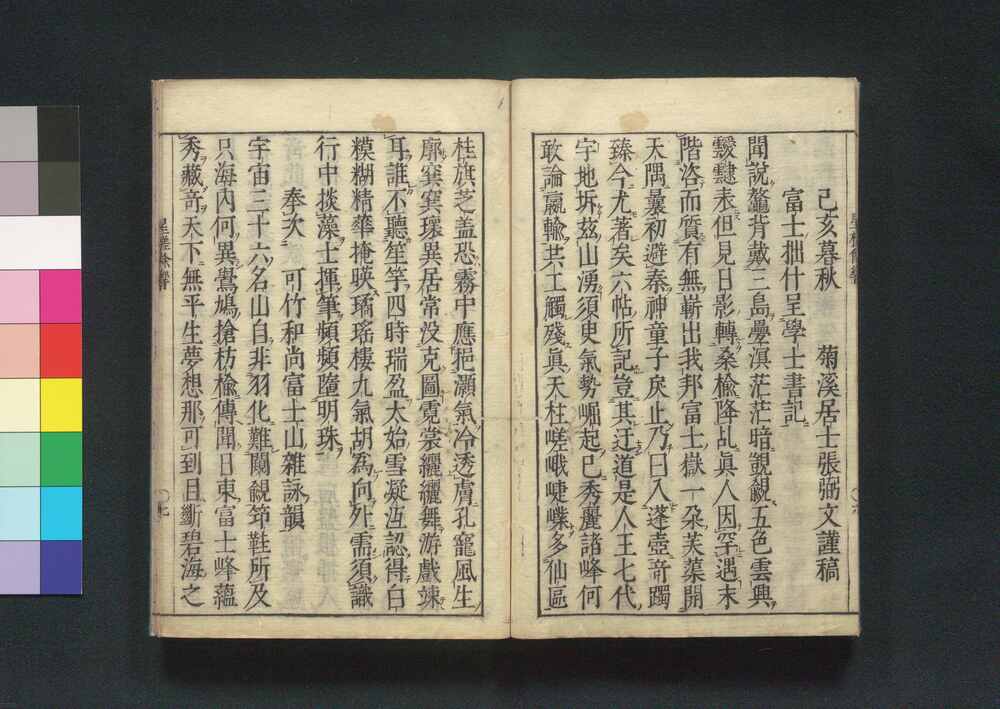 己亥暮秋　菊溪居士張弼文謹稿
富士拙什呈學士書記
聞說鼇背戴三島壘溟茫茫暗覩覦五色雲輿
驂虬未但見日影轉桑楡降乩眞人因罕遇末
階咨而質有無嶄出我邦富士嶽一朵芙蕖開
天隅曩初避秦神童子戾止乃曰入蓬壺奇躅
臻今尤著矣六帖所記豈其迂道是人王七代
宇地坼玆山湧須臾氣勢崛起已秀麗諸峰何
敢論嬴輸共工觸殘眞天柱嗟峨嵥多仙區
桂旗芝盖恐霧中應挹灝氣冷透膚孔竉風生
廓寞寞瓌異居常没克圖霓裳纚纚舞游戲竦
耳誰不聽笙竽四時瑞盈太始雪凝冱認得白
糢糊精華掩暎璚瑤樓九氣胡爲向外需須識
行中掞藻士揮筆頻頻墮明珠
奉次　可竹和尚富士山雜詠韻
宇宙三十六名山自非羽化難闚覦筇鞋所及
只海内何異鷽鳩搶枋楡傳聞日東富士峰蘊
秀藏奇天下無平生夢想那可到目斷碧海之